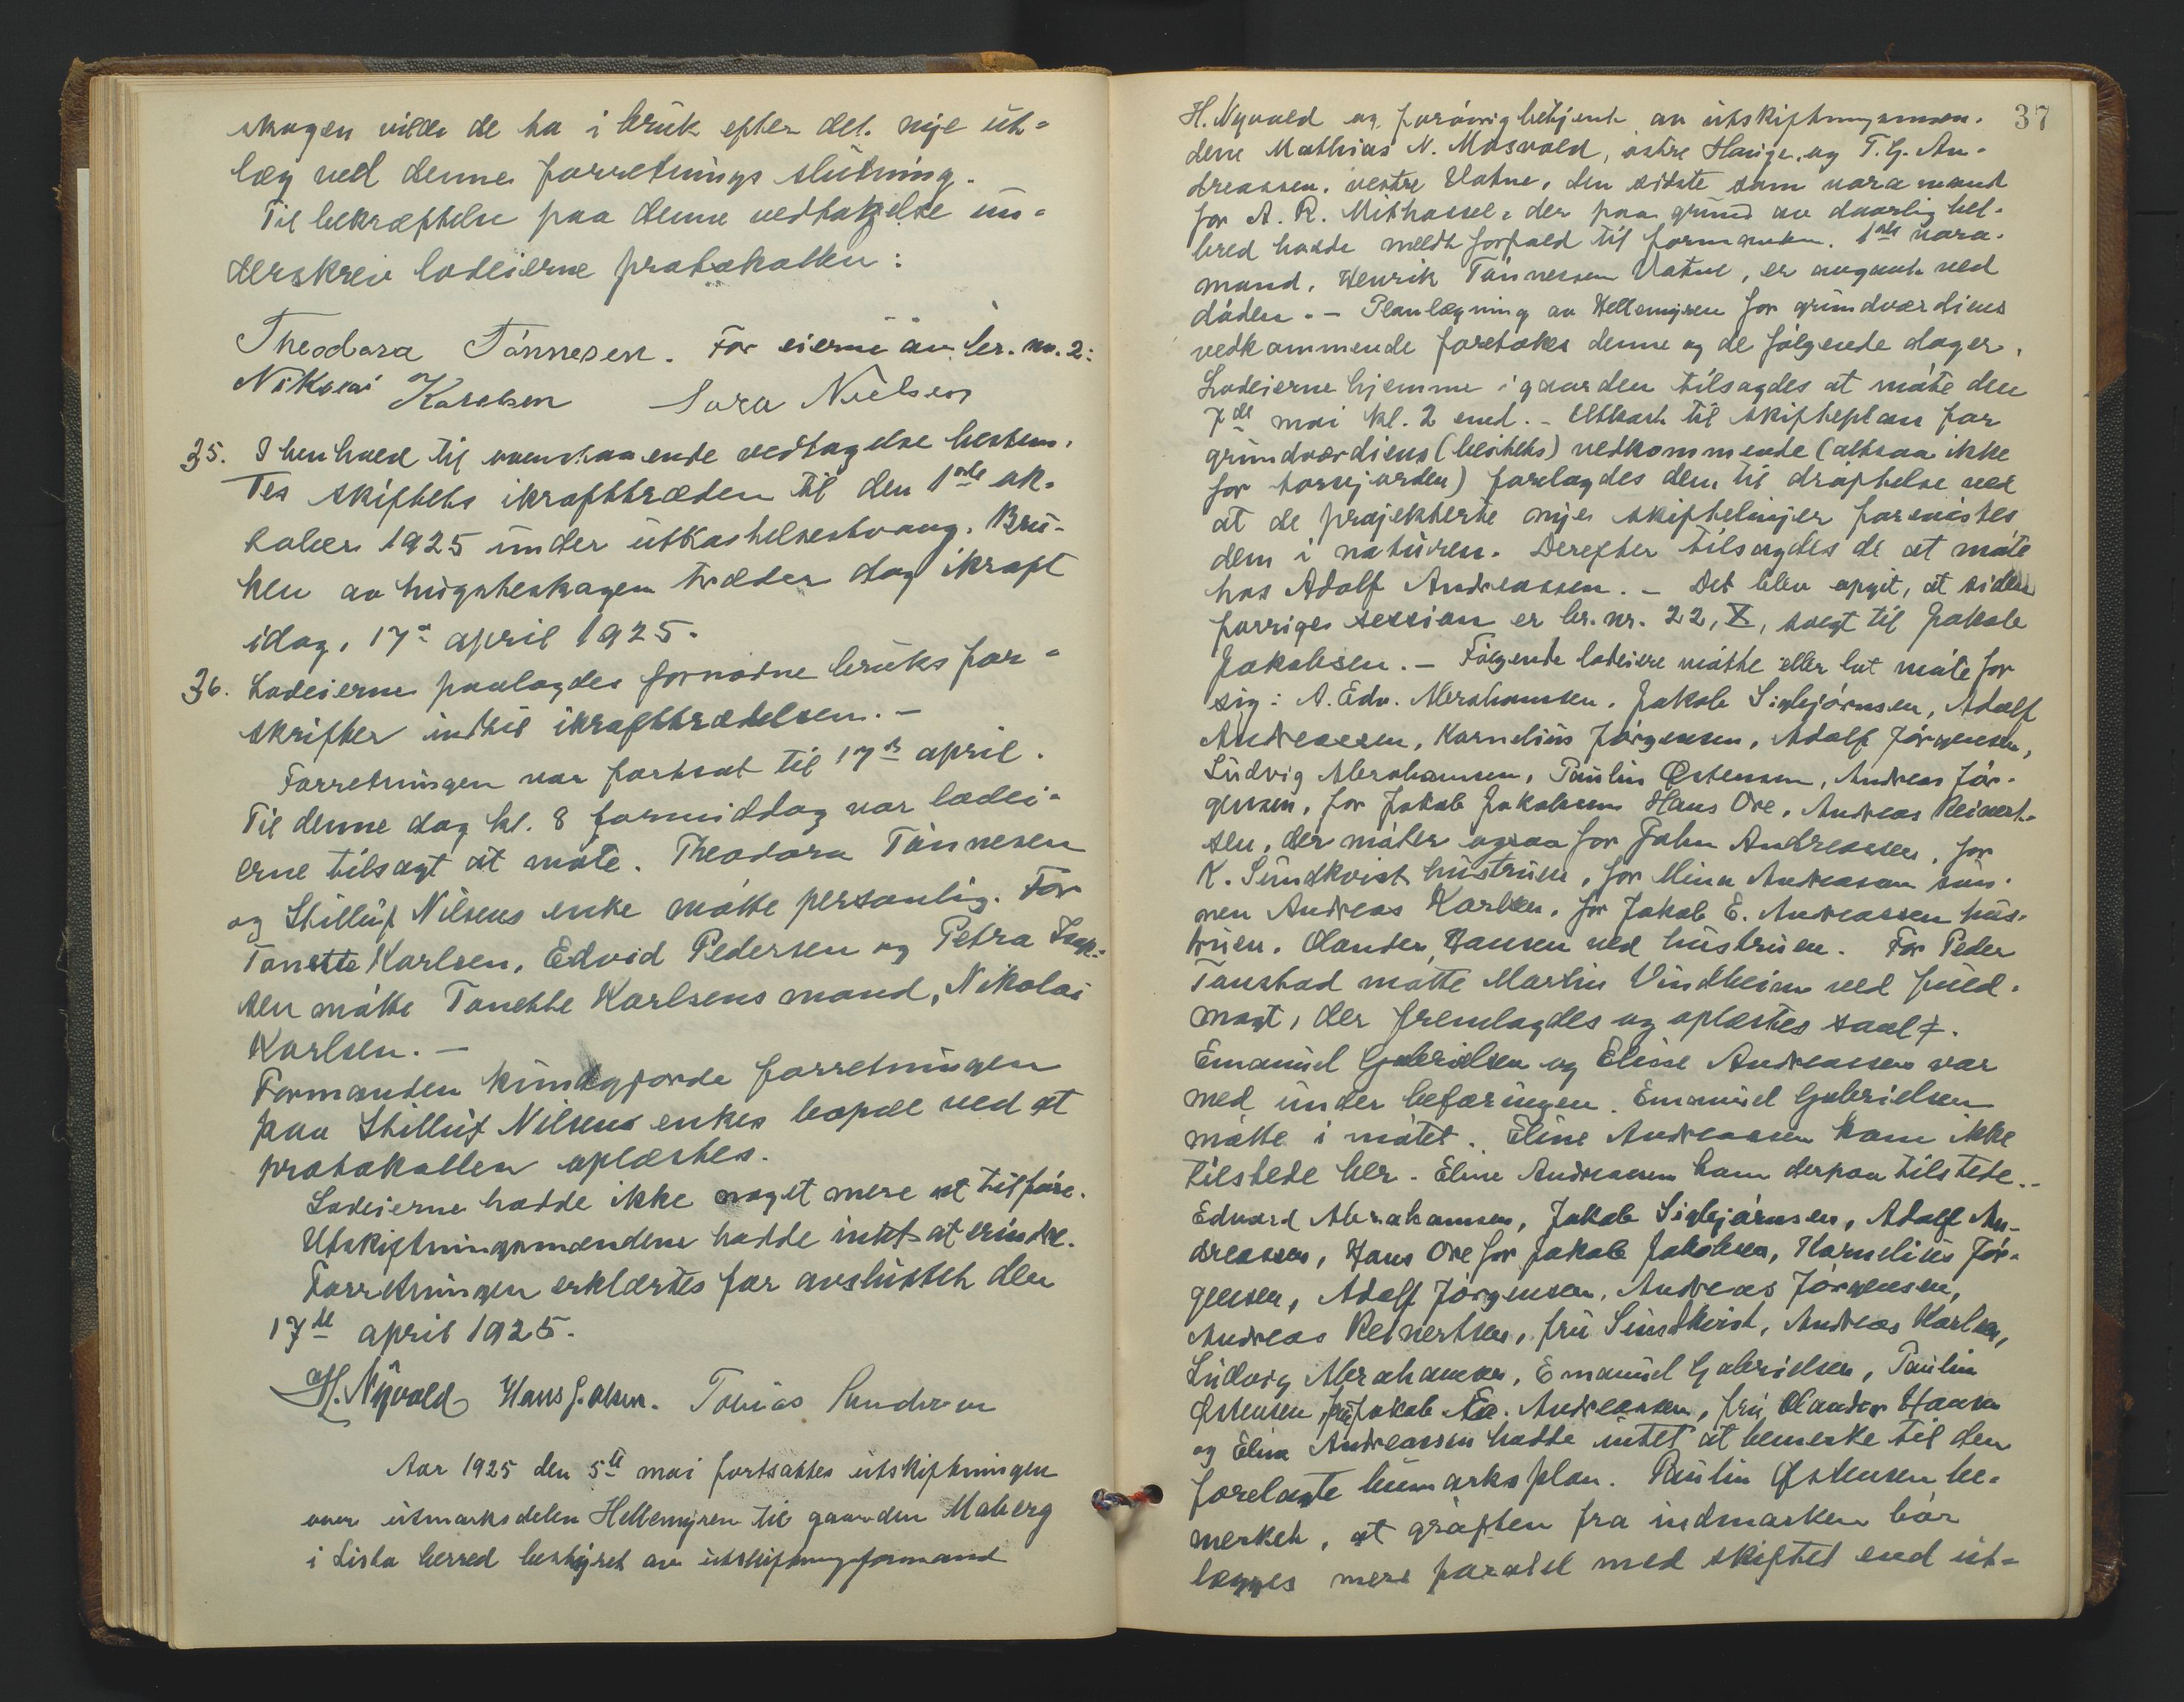 skogen vilde de ha i bruk efter det nye ut-
læg ved denne forretnings slutning.
Til bekræftelse paa denne vedtagelse un-
derskrev lodeierne protokollen:
Theodora Tönnesen. For eierne av br. no. 2:
Nikolai Karlsen Sara Nielsen
35. I henhold til ovenstaaende vedtagelse bestem-
tes skiftets ikrafttræden til den 1ste ok-
tober 1925 under utkastelsestvang. Bru-
ken av hugstskogen træder dog ikraft
idag, 17de april 1925.
36. Lodeierne paalagdes fornødne bruksfor-
skrifter indtil ikrafttrædelsen. –
Forretningen var fortsat til 17de april.
Til denne dag kl. 8 formiddag var lodei-
erne tilsagt at møte. Theodora Tönnesen
og Stilluf Nilsens enke møtte personlig. For
Tonette Karlsen, Edvid Pedersen og Petra
sen møtte Tonette Karlsens mand, Nikolai
Karlsen. –
Formanden kundgjorde forretningen
paa Stilluf Nilsens enkes bopæl ved at
protokollen oplæstes.
Lodeierne hadde ikke noget mere at tilføre.
Utskiftningsmændene hadde intet at erindre.
Forretningen erklærtes for avsluttet den
17de april 1925.
H. Nyvold Hans J. Olsen. Tobias Gundersen
Aar 1925 den 5te mai fortsattes utskiftningen
over utmarksdelen Hellemyren til gaarden Maberg
i Lista herred bestyret av utskiftningsformand
37
H. Nyvold og forøvrig betjent av utskiftningsmæn-
dene Mathias N. Mosvold, østre Hauge, og T. G. An-
dreassen, vestre Vatne, den sidste som varamand
for A. R. Mithassel, der paa grund av daarlig hel-
bred hadde meldt forfald til formanden. 1ste vara-
mand, Henrik Tönnessen Vatne, er avgaat ved
døden. – Planlægning av Hellemyren for grundværdiens
vedkommende foretokes denne og de følgende dager.
Lodeierne hjemme i gaarden tilsagdes at møte den
7de mai kl. 2 emd. – Utkast til skifteplan for
grundværdiens (beitets) vedkommende (altsaa ikke
for torvjorden) forelagdes dem til drøftelse ved
at de projekterte nye skiftelinjer forevistes
dem i naturen. Derefter tilsagdes de at møte
hos Adolf Andreassen. – Det blev opgit, at siden
forrige session er br. nr. 22, X, solgt til Jakob
Jakobsen. – Følgende lodeiere møtte eller lot møte for
sig: A. Edv. Abrahamsen, Jakob Sigbjørnsen, Adolf
Andreassen, Kornelius Jørgensen, Adolf Jørgensen,
Ludvig Abrahamsen, Paulin Østensen, Andreas Jør-
gensen, for Jakob Jakobsen Hans Ore, Andreas Reinert-
sen, der møter ogsaa for John Andreassen, for
K. Sundkvist hustruen, for Mina Andreasen søn-
nen Andreas Karlsen, for Jakob E. Andreassen hus-
truen, Olander Hansen ved hustruen. For Peder
Tanstad møtte Martin Vindheim ved fuld-
magt, der fremlagdes og oplæstes saal.
Emanuel Gabrielsen og Eline Andreassen var
med under befaringen. Emanuel Gabrielsen
møtte i møtet. Eline Andreassen kom ikke
tilstede her. Eline Andreassen kom derpaa tilstede. –
Edvard Abrahamsen, Jakob Sigbjørnsen, Adolf An-
dreassen, Hans Ore for Jakob Jakobsen, Kornelius Jør-
gensen, Adolf Jørgensen, Andreas Jørgensen,
Andreas Reinertsen, fru Sundkvist, Andreas Karlsen,
Ludvig Abrahamsen, Emanuel Gabrielsen, Paulin
Østensen, fru Jakob Andreassen, fru Olander Hansen
og Eline Andreassen hadde intet at bemerke til den
forelagte plan. Paulin Østensen be-
merket, at grøften fra indmarken bør
lægges mere paralel med skiftet end ut-